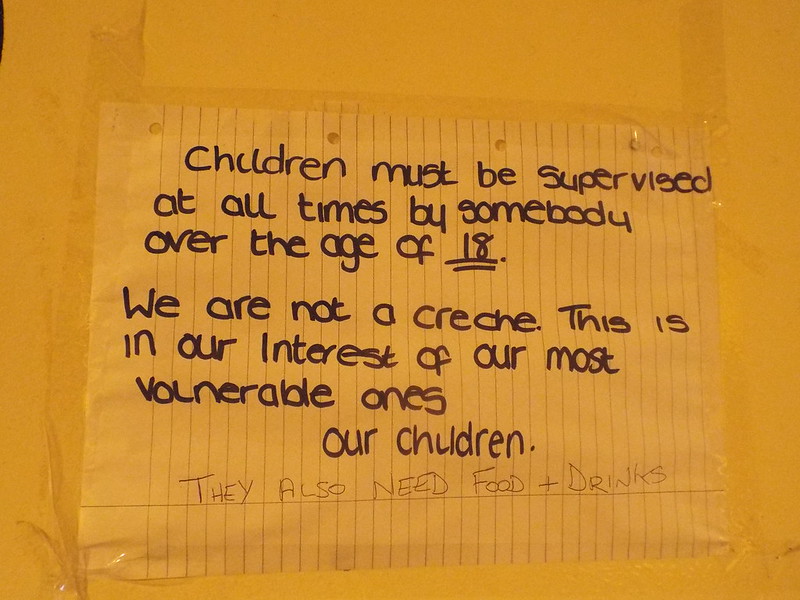 Children must be supervised
at all times by somebody
over the age of 18.
We are not a creche. This is
in our Interest of our most
volnerable ones
our children.
THEY ALSO NEED FOOD + DRINKS